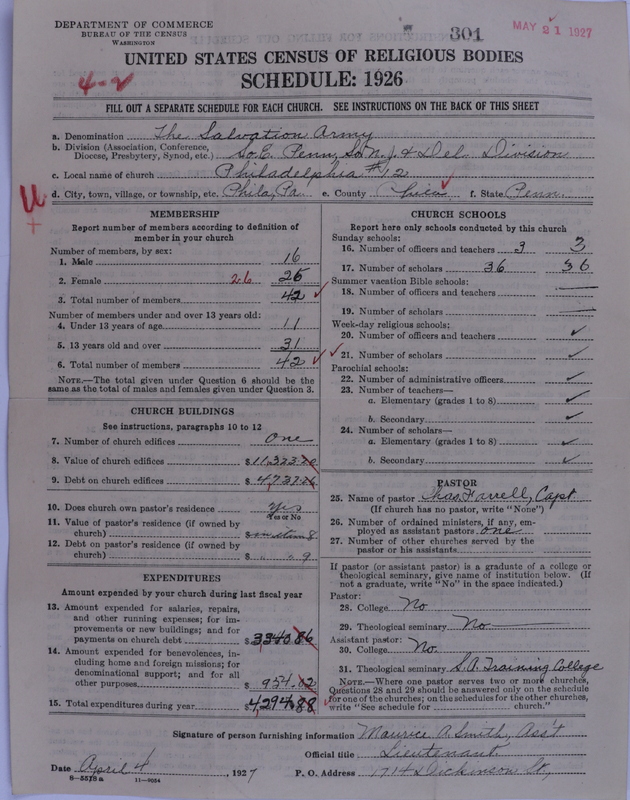 DEPARTMENT OF COMMERCE
BUREAU OF THE CENSUS
WASHINGTON
301
MAY 21 1927
UNITED STATES CENSUS OF RELIGIOUS BODIES
SCHEDULE: 1926
4-2
FILL OUT A SEPARATE SCHEDULE FOR EACH CHURCH. SEE INSTRUCTIONS ON THE BACK OF THIS SHEET
a. Denomination The Salvation Army
b. Division (Association, Conference, Diocese, Presbytery, Synod, etc.) So. E. Penn, So. N. J. & Del. Division
c. Local name of church Philadelphia #12
d. City, town, village, or township, etc. Phila, Pa. e. County f. State Penn.
U
MEMBERSHIP
Report number of members according to definition of
member in your church
Number of members, by sex:
1. Male 16
2. Female 26 26
3. Total number of members 42
Number of members under and over 13 years old:
4. Under 13 years of age 11
5. 13 years old and over 31
6. Total number of members 42
NOTE.—The total given under Question 6 should be the
same as the total of males and females given under Question 3.
CHURCH BUILDINGS
See instructions, paragraphs 10 to 12
7. Number of church edifices One
8. Value of church edifices $11,323.20
9. Debt on church edifices $4,737.26
10. Does church own pastor's residence Yes
Yes or No
11. Value of pastor's residence (if owned by
church) $ 8
12. Debt on pastor's residence (if owned by
church) $ " " 9
EXPENDITURES
Amount expended by your church during last fiscal year
13. Amount expended for salaries, repairs,
and other running expenses; for im-
provements or new buildings; and for
payments on church debt $3340.86
14. Amount expended for benevolences, in-
cluding home and foreign missions; for
denominational support; and for all
other purposes $954.02
15. Total expenditures during year $4,294.88
CHURCH SCHOOLS
Report here only schools conducted by this church
Sunday schools:
16. Number of officers and teachers 3 3
17. Number of scholars 36 36
Summer vacation Bible schools:
18. Number of officers and teachers
19. Number of scholars
Week-day religious schools:
20. Number of officers and teachers
21. Number of scholars
Parochial schools:
22. Number of administrative officers
23. Number of teachers—
a. Elementary (grades 1 to 8)
b. Secondary
24. Number of scholars—
a. Elementary (grades 1 to 8)
b. Secondary
PASTOR
25. Name of pastor Chas. Farrell, Capt
(If church has no pastor, write "None")
26. Number of ordained ministers, if any, em-
ployed as assistant pastors one
27. Number of other churches served by the
pastor or his assistants
If pastor (or assistant pastor) is a graduate of a college or
theological seminary, give name of institution below. (If
not a graduate, write "No" in the space indicated.)
Pastor:
28. College No
29. Theological seminary No
Assistant pastor:
30. College No.
31. Theological seminary S.A. Training College
NOTE.—Where one pastor serves two or more churches,
Questions 28 and 29 should be answered only on the schedule
for one of the churches; on the schedules for the other churches,
write "See schedule for church."
Signature of person furnishing information Maurice A. Smith, Ass't
Official title Lieutenant
Date April 4, 1927 P. O. Address 1714 Dickinson St,
8-5518a 11-9024